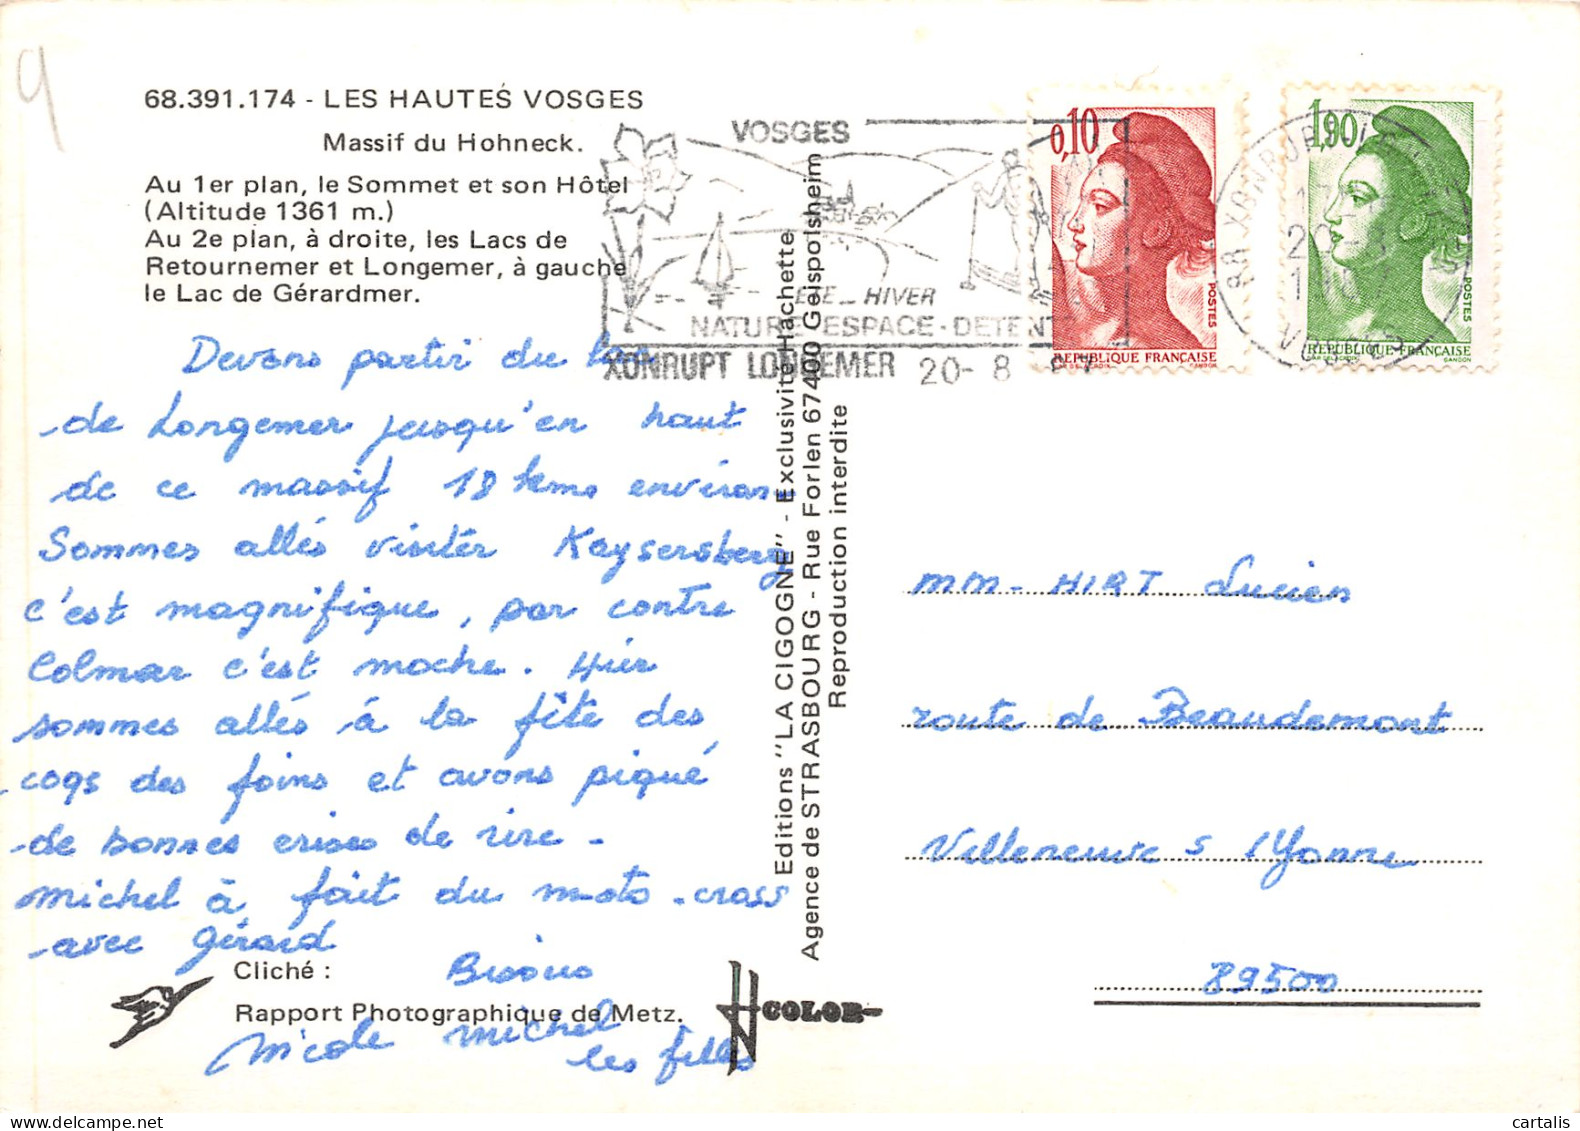 9
68.391.174 - LES HAUTES VOSGES
Massif du Hohneck.
Au 1er plan, le Sommet et son Hôtel
(Altitude 1361 m.)
Au 2e plan, à droite, les Lacs de
Retournemer et Longemer, à gauche
le Lac de Gérardmer.
VOSGES
ETE - HIVER
NATURE - ESPACE - DETENTE
XONRUPT LONGEMER 20-8
0,10
POSTES
REPUBLIQUE FRANÇAISE
1,90
POSTES
REPUBLIQUE FRANÇAISE
GANDON
88 XONRUPT
20-8
VOSGES
Devons partir du
de Longemer jusqu'en haut
de ce massif 18 kms environ
Sommes allés visiter Kaysersberg
c'est magnifique, par contre
Colmar c'est moche. Hier
sommes allés à la fête des
coqs des foins et avons piqué
de bonnes crises de rire -
Michel à fait du moto-cross
avec Gérard
Bisous
Nicole Michel
les filles
Cliché :
Rapport Photographique de Metz.
COLOR
Editions "LA CIGOGNE" - Exclusivité Hachette
Agence de STRASBOURG - Rue Forlen 67400 Geispolsheim
Reproduction interdite
MM - HIRT Lucien
route de Beaudemont
Villeneuve s/Yonne
89500
cartalis